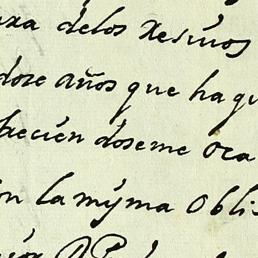 delos Vesinos
dose años que ha
freciendoseme oca
la mysma Obli